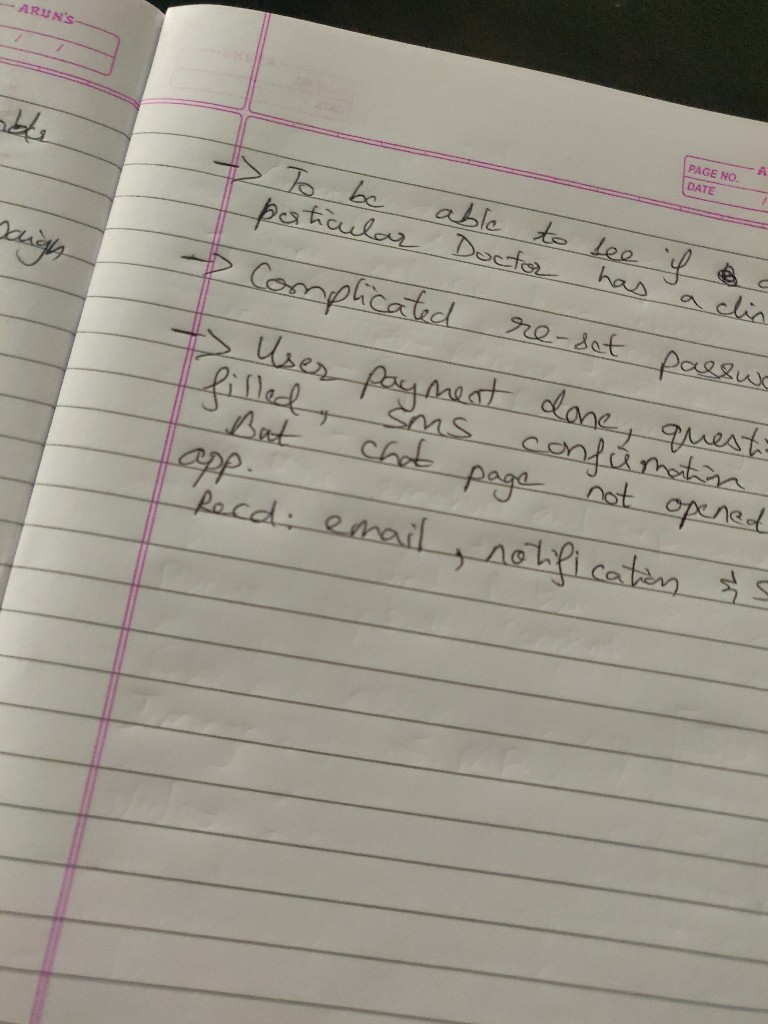 ARUN'S
PAGE NO.
DATE
→ To be able to see if a
particular Doctor has a clin
→ Complicated re-set passwo
→ User payment done, questi
filled, SMS confirmation
But chat page not opened
app.
Recd: email, notification &